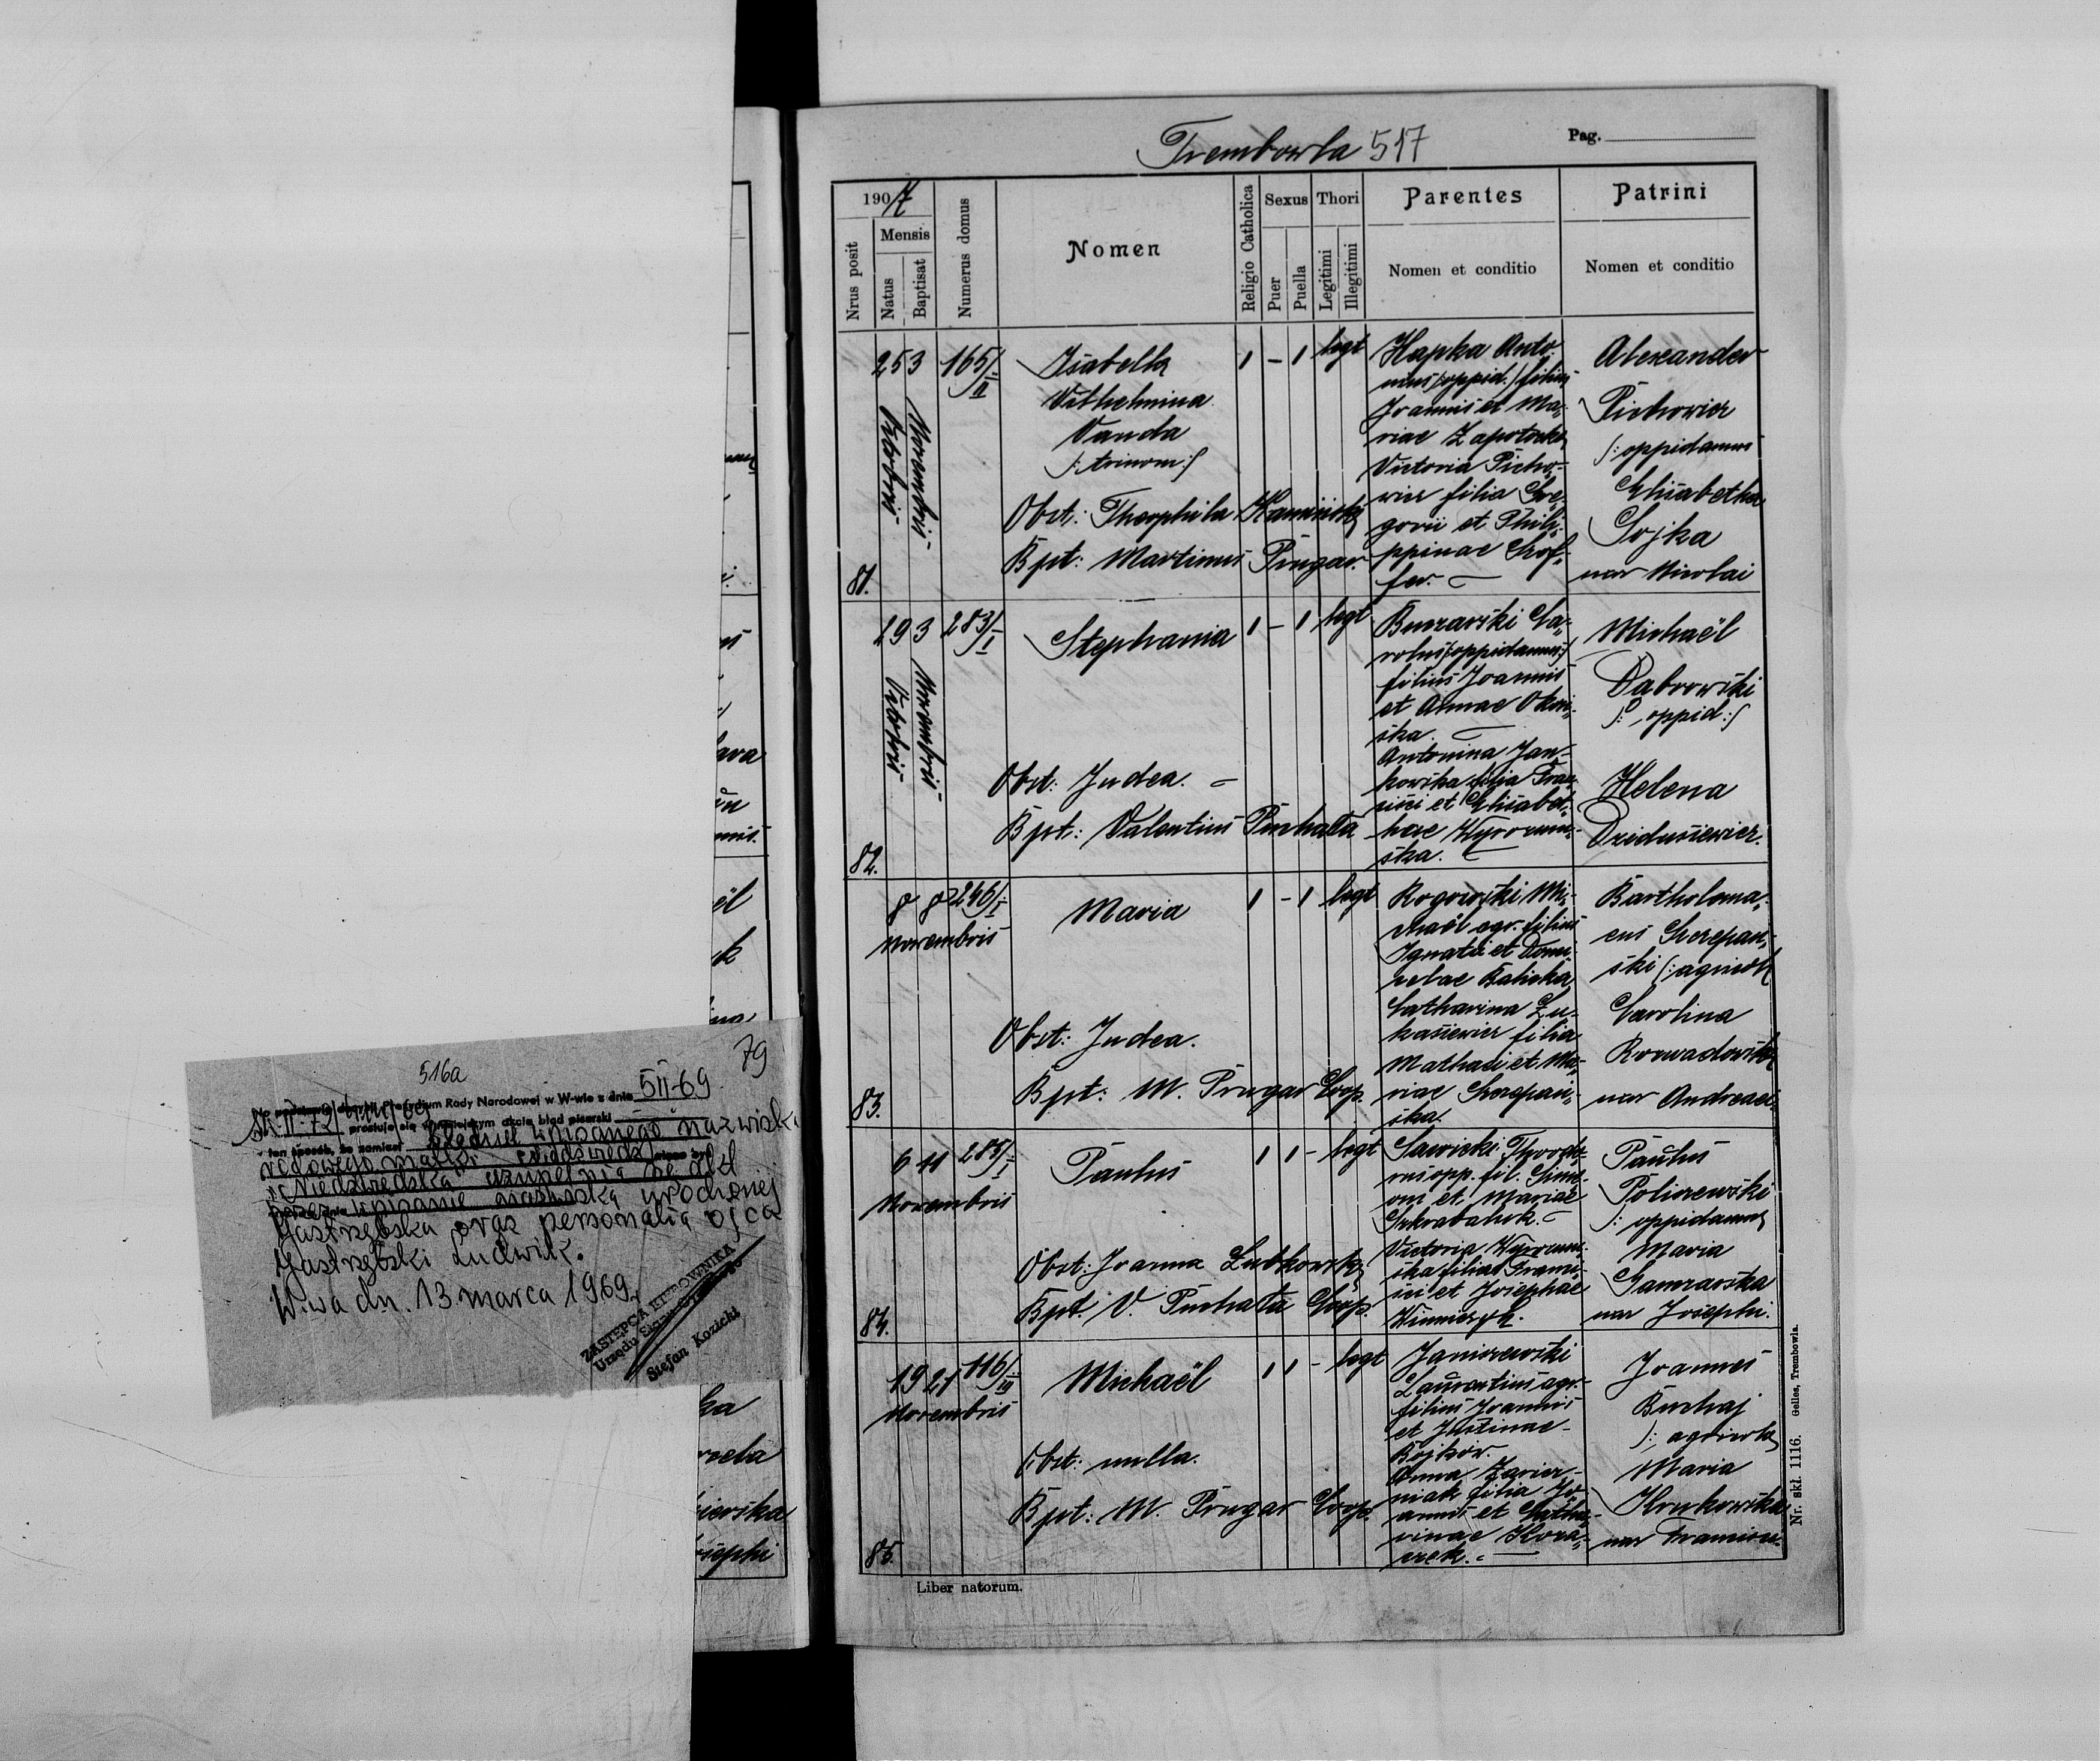 Trembowla 517
Pag.
1907
Nrus posit
Mensis
Natus
Baptisat
Numerus domus
Nomen
Religio Catholica
Sexus
Puer
Puella
Thori
Legitimi
Illegitimi
Parentes
Nomen et conditio
Patrini
Nomen et conditio
81.
25 3
Octobris
Novembris
165/II
Isabella
Vilhelmina
Vanda
/: trinom :/
Obst: Theophila Kamińska
Bpt: Martinus Prugar.
1 - 1 legt
Hapka Anto-
nius /oppid./ filius
Joannis et Ma-
riae Zapotocka
Victoria Picho-
wicz filia Gre-
gorii et Phili-
ppinae
fer.
Alexander
Pichowicz
/: oppidanus
Elisabetha
Sojka
uxor Nicolai
82.
29 3
Octobris
Novembris
283/I
Stephania
Obst: Judea.
Bpt: Valentius Puchała
1 - 1 legt
Buczarski Ca-
rolus /:oppidanus:/
filius Joannis
et Annae
ska.
Antonina Jan-
kowska filia Fran-
cisci et Elisabet-
hae
ska.
Michaël
Dąbrowski
/: oppid :/
Helena
Dzidusiewicz.
83.
8 8
Novembris
246/I
Maria
Obst: Judea.
Bpt: M. Prugar Coop.
1 - 1 legt
Rogowski Mi-
chaël agr. filius
Ignatii et Domi-
celae Balicka
Catharina Łu-
kasiewicz filia
Mathaei et Ma-
riae Szczepań-
ska.
Bartholoma-
eus Szczepań-
ski /: agricola
Carolina
Rozwadowska
uxor Andreae.
84.
6 11
Novembris
288/I
Paulus
Obst: Joanna Lubkowska
Bpt V. Puchała Coop.
1 1 - legt
Sawicki Theodo-
rus opp. fil. Sime-
onis et Mariae
Victoria
ska filia Franci-
sci et Josephae
Paulus
Poliszewski
/: oppidanus
Maria
uxor Josephi.
85.
19 21
Novembris
116/III
Michaël
Obst: nulla.
Bpt: M. Prugar Coop.
1 1 - legt
Janiszewski
Laurentius agr.
filius Joannis
et Justinae
Bojków.
Anna
niak filia Jo-
annis et Catha-
rinae Koza-
czek.
Joannes
Buchaj
/: agricola
Maria
Krukowska
uxor Francisci.
Liber natorum.
Nr. skł. 1116. Gelles, Trembowla.
516a
79
Prezydium Rady Narodowej w W-wie z dnia 5 II-69
prostuje się w niniejszym akcie błąd pisarski
ten sposób, że zamiast błędnie wpisanego nazwiska
rodowego matki
"Niedźwiedzka" uzupełnia się akt
przez wpisanie nazwiska urodzonej
Jastrzębska oraz personalia ojca
Jastrzębski Ludwik.
W-wa dn. 13 marca 1969.
ZASTĘPCA KIEROWNIKA
Urzędu Stanu Cywilnego
Stefan Kozicki